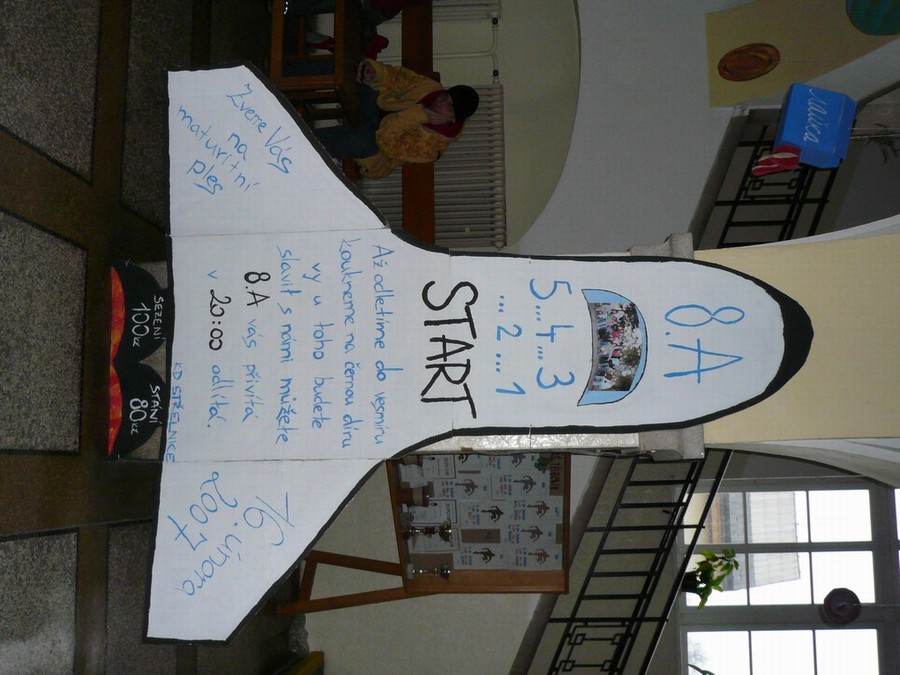 8.A
5...4...3
...2...1
START
Až odletíme do vesmíru
koukneme na černou díru
vy u toho budete
slavit s námi můžete
8.A vás přivítá
v 20:00 odlítá.
KD STŘELNICE
Zveme Vás
na
maturitní
ples
16.
února
2007
SEZENÍ
100Kč
STÁNÍ
80Kč